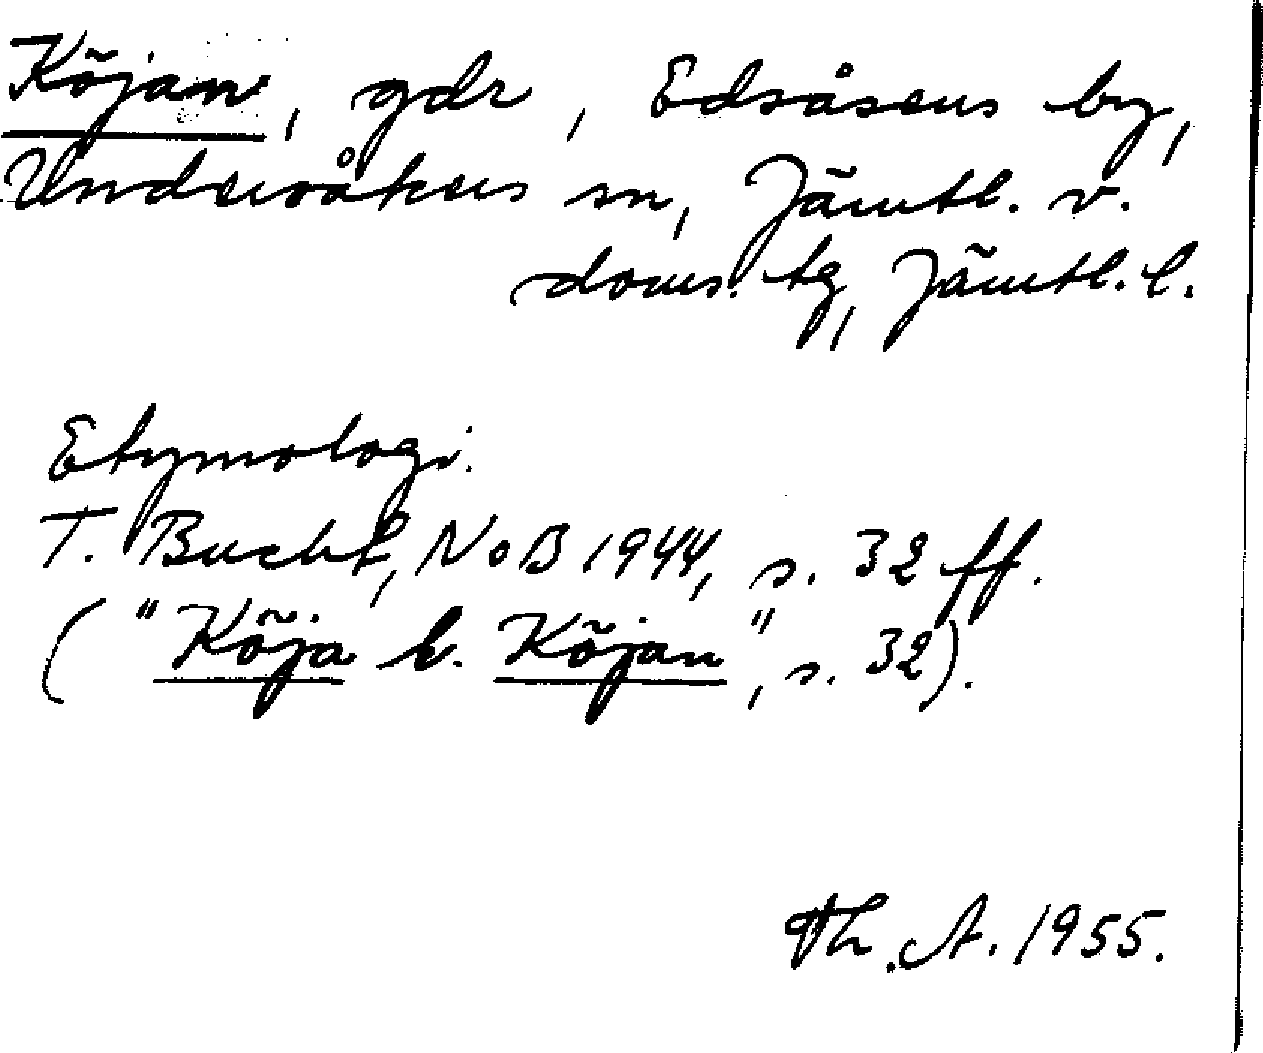 Köjan, gdr, Edsåsens by,
Undersåkers sn, Jämtl. v.
doms. tg, Jämtl. l.
Etymologi.
T. Bucht, NoB 1944, s. 32 ff.
("Köja l. Köjan", s. 32).
Th. A. 1955.